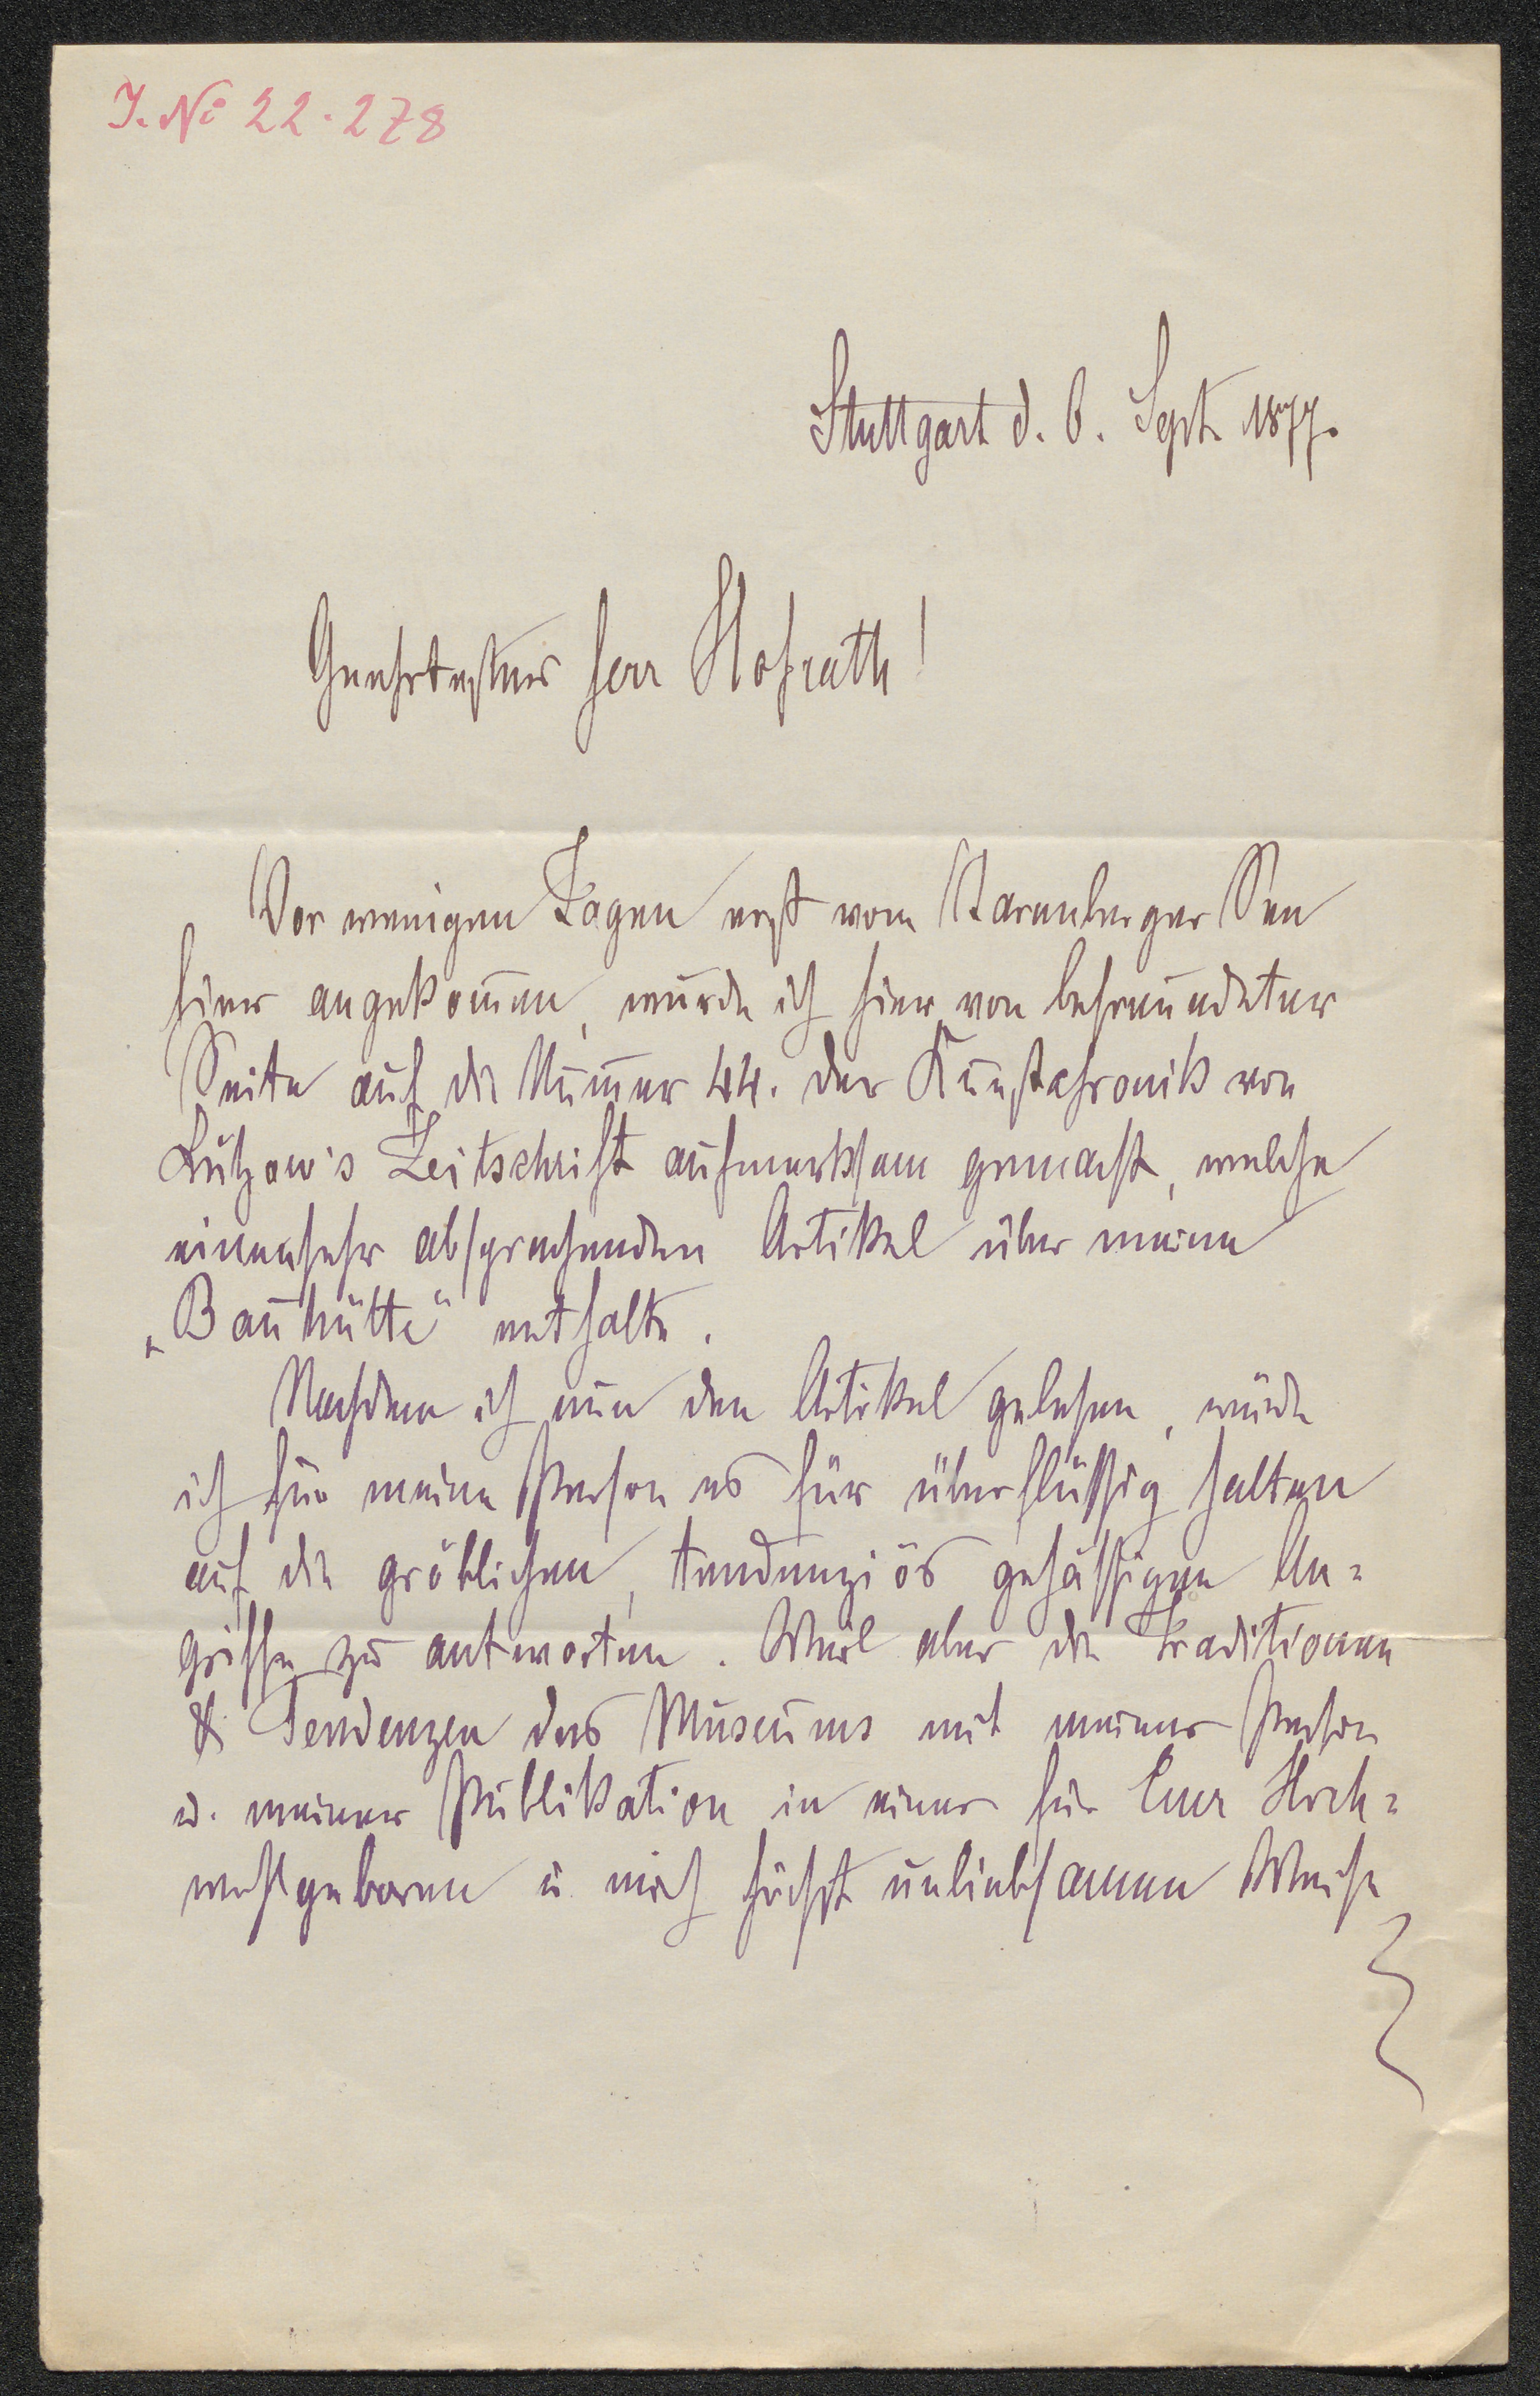 J. No 22.278
Stuttgart d. 6. Sept. 1877.
Geehrtester Herr Hofrath!
Vor wenigen Tagen erst vom Starenberger See
hier angekom̅en, wurde ich hier von befreundeter
Seite auf die Num̅er 44. der Kunstchronik von
Lützow's Zeitschrift aufmerksam gemacht, welche
einen sehr absprechenden Artikel über meine
„Bauhütte" enthalte.
Nachdem ich nun den Artikel gelesen, würde
ich für meine Person es für überflüssig halten
auf die gröblichen, tendenziös gehässigen An=
griffe zu antworten. Weil aber die Traditionen
& Tendenzen des Museums mit meiner Person
u. meiner Publikation in einer für Euer Hoch=
wohlgeboren u. mich höchst unliebsamen Weise